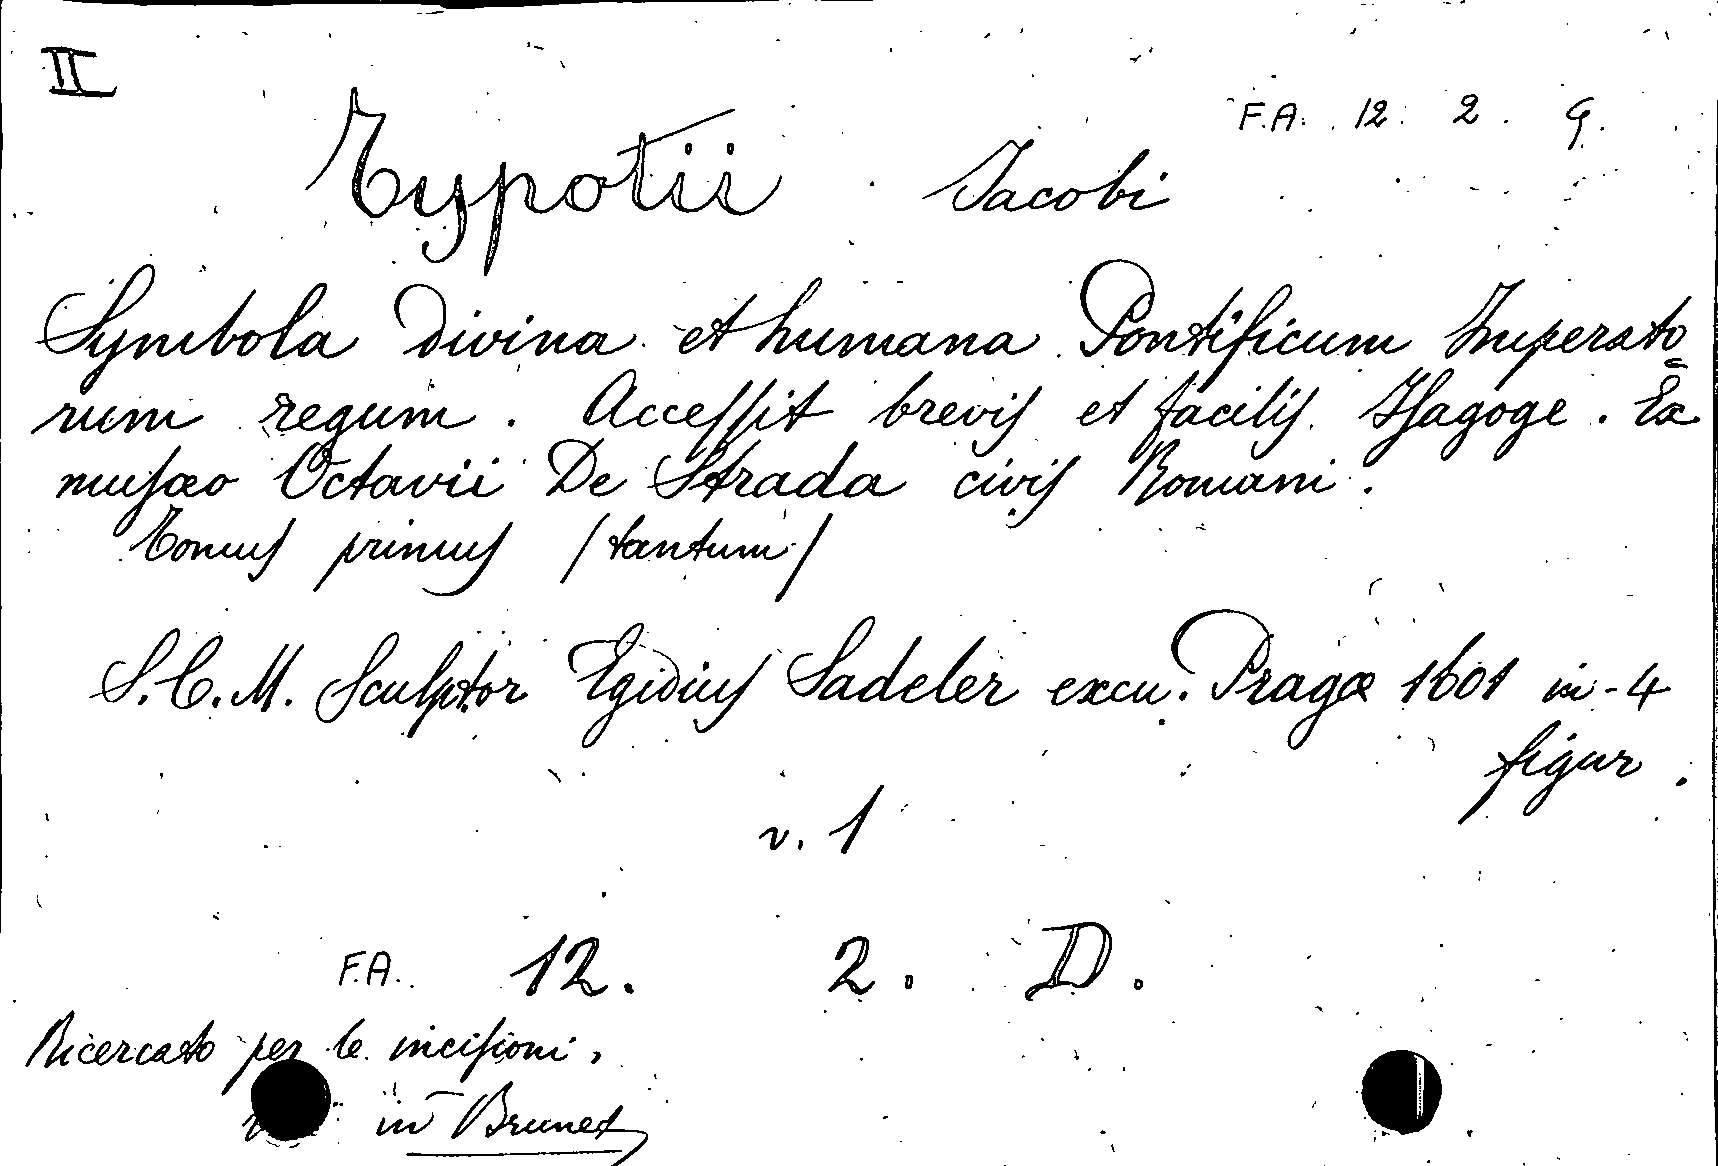 II
F.A. 12. 2. G.
Typotii Jacobi
Symbola Divina et humana Pontificum Imperato=
rum regum. Accessit brevis et facilis Isagoge. Ex
musæo Octavii De Strada civis Romani.
Tomus primus /tantum/
S.C.M. Sculptor Egidius Sadeler excu. Pragæ 1601 in-4
figur.
v. 1
F.A. 12. 2. D.
Ricercato per le incisioni,
in Brunet